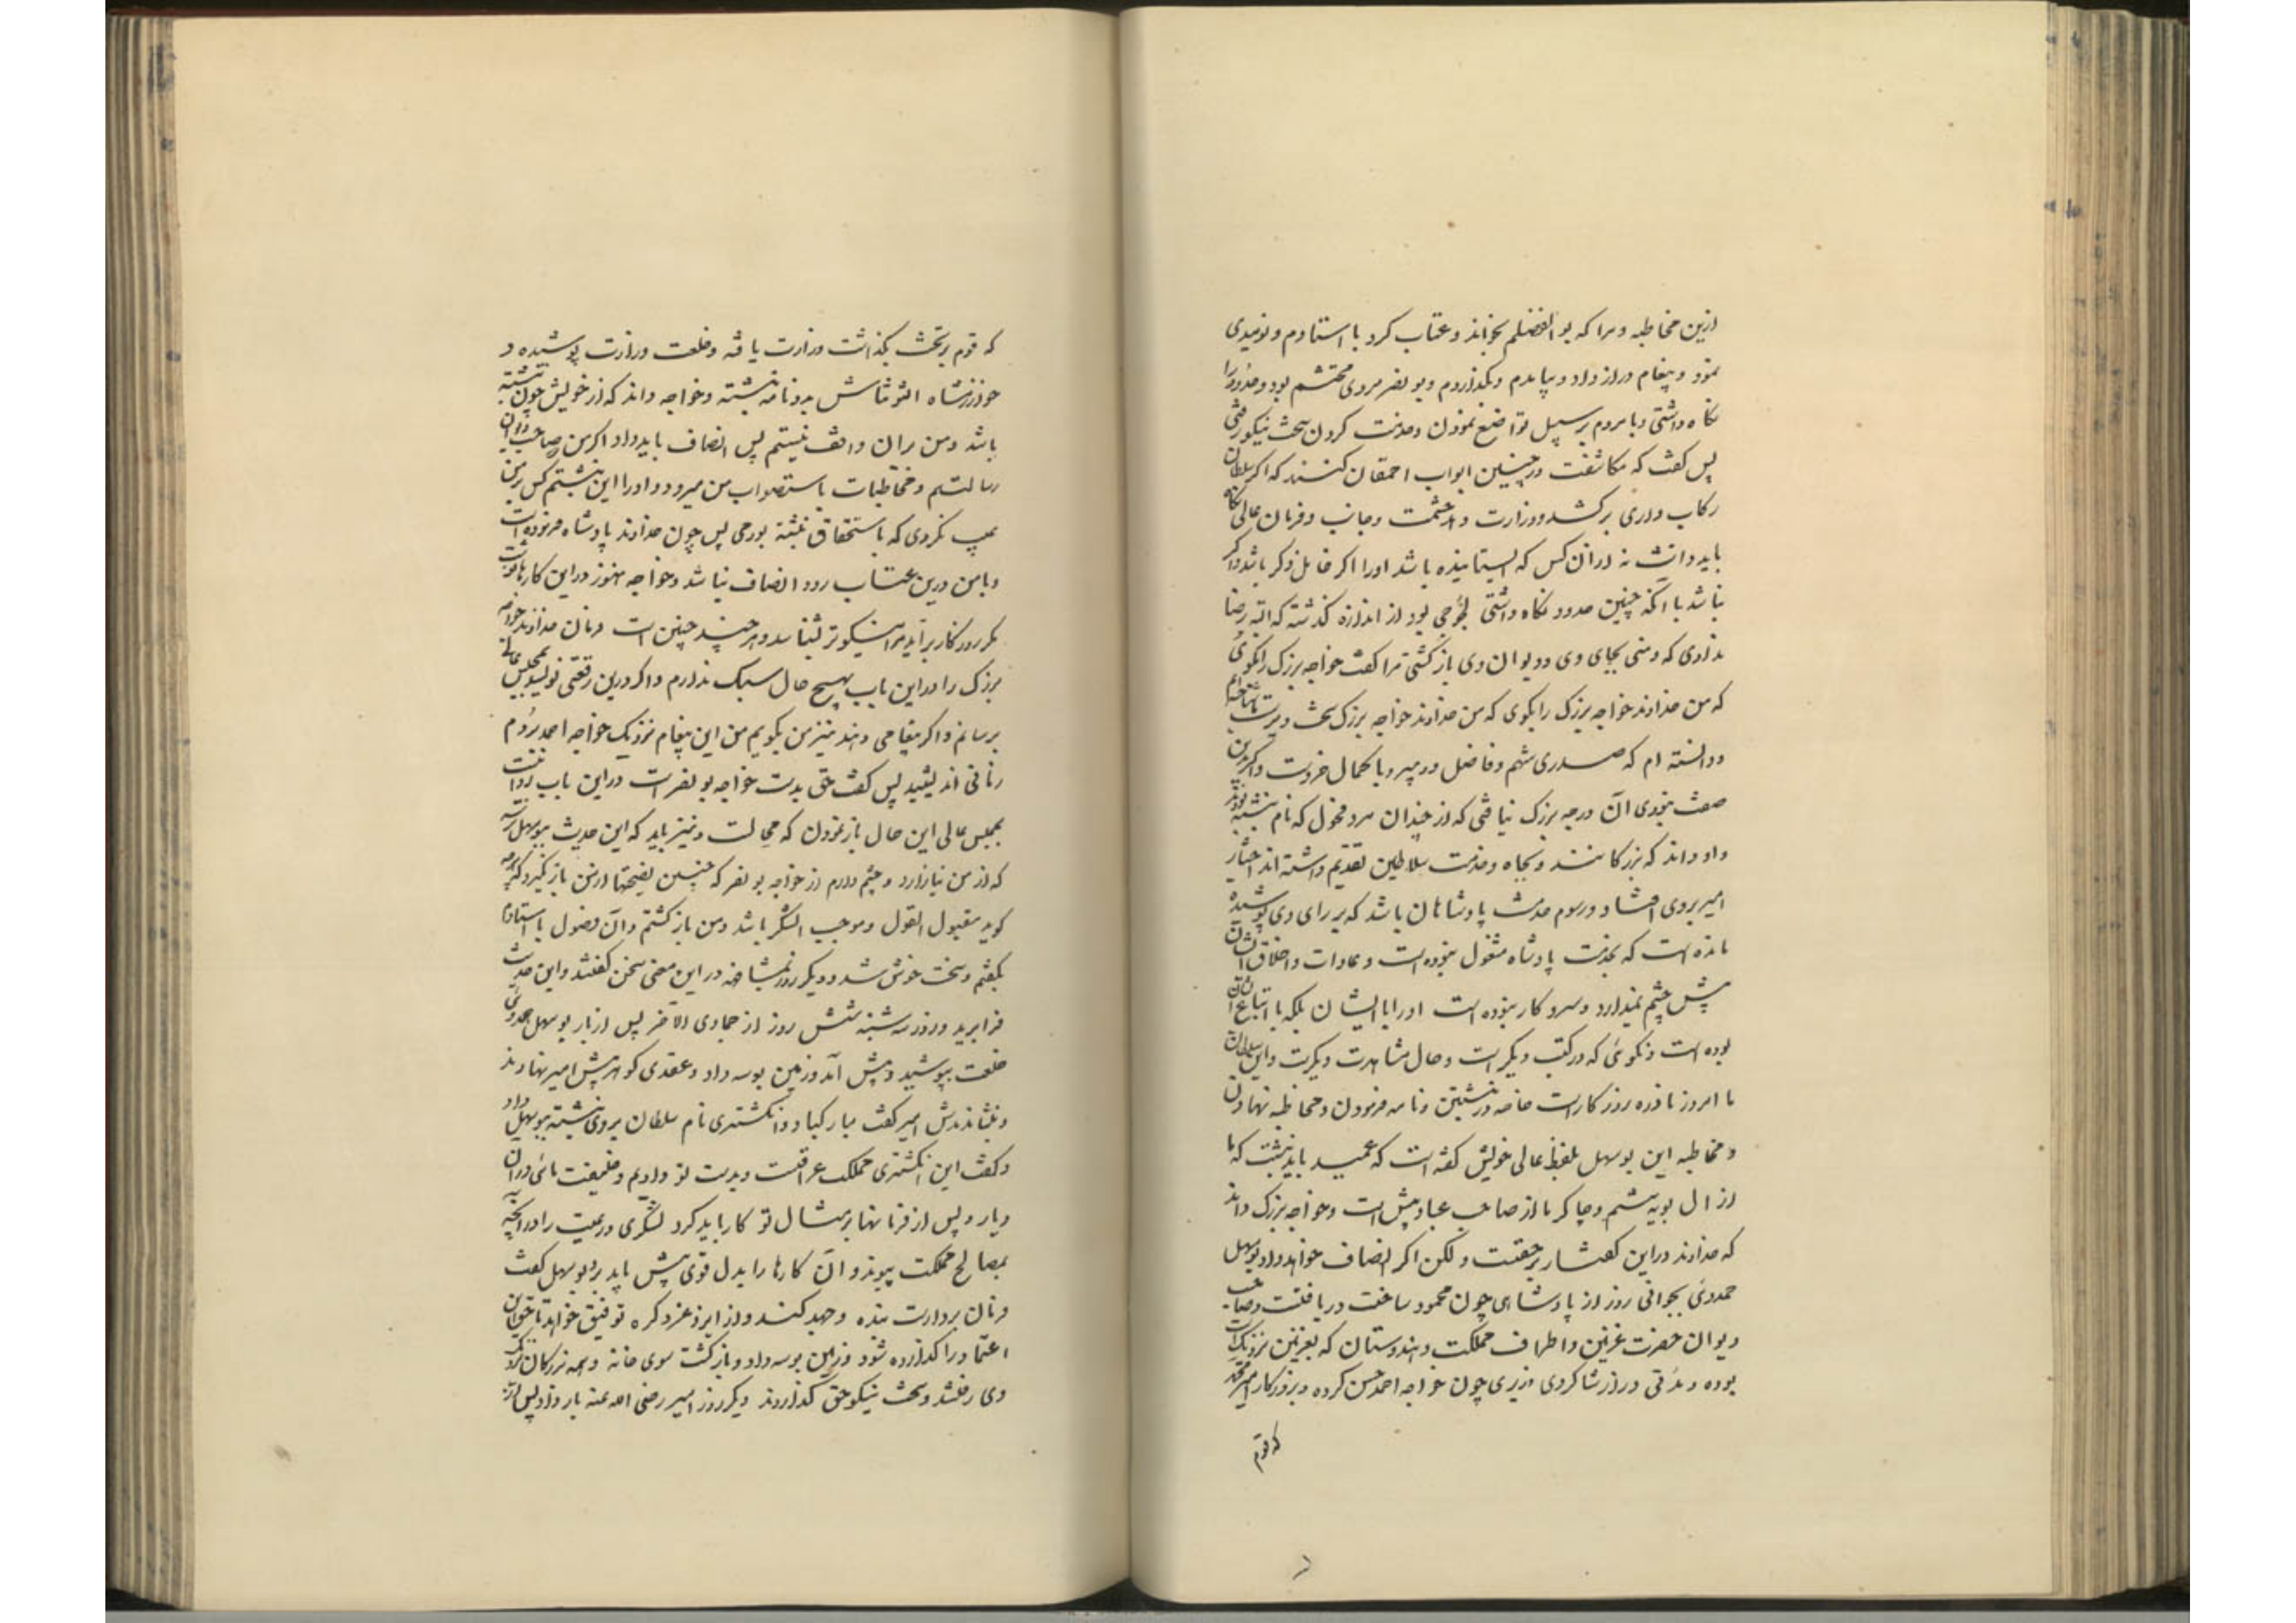 ازین مخاطبه و مرا که بو الفضلم بخواند و عتاب کرد با استادم و نومیدی
نمود و پیغام دراز داد و بیامدم و بگذاردم و بو نصر مردی محتشم بود و حدود را
نگاه داشتی و با مردم بر سبیل تواضع نمودن و خدمت کردن سخت نیکو رفتی
پس گفت که مکاشفت در چنین ابواب احمقان کنند که اگر سلطان
رکاب داری برکشد و وزارت دهد حشمت و جانب و فرمان عالی نگاه
باید داشت نه از آن کس که ایستانیده باشد او را اگر خامل ذکر باشد و اگر
نباشد با آنکه چنین حدود نگاه داشتی لجوجی بود از اندازه گذشته که البته رضا
ندادی که وهنی بجای وی و دیوان وی بازگشتی مرا گفت خواجه بزرگ را بگوی
که من خداوند خواجه بزرگ را بگوی که من خداوند خواجه بزرگ سخت دیرست تا شناخته‌ام
و دانسته ام که صدری شهم و فاضل و دبیر و با کمال خردست و اگر بدین
صفت نبودی آن درجه بزرگ نیافتی که از چندان مرد فحول که نام نبشته بودند
داد و داند که بزرگانند و بجاه و خدمت سلاطین تقدیم داشته اند اختیار
امیر بر وی افتاد و رسوم خدمت پادشاهان باشد که بر رای وی پوشیده
مانده است که بخدمت پادشاه مشغول نبوده است و عادات و اخلاق ایشان
پیش چشم ندارد و سر و کار نبوده است او را با ایشان بلکه با اتباع ایشان
بوده است و نکوئی که در کتب دیگر است و حال مشاهدت دیگرست و این سلطان
ما امروز نادره روزگار است خاصه در نبشتن و نامه فرمودن و مخاطبه نهادن
و مخاطبه این بوسهل بلفظ عالی خویش گفته است که عمید باید نبشت که ما
از آل بویه بیشیم و چاکر ما از صاحب عباد بیش است و خواجه بزرگ داند
که خداوند در این گفتار بر حقست و لکن اگر انصاف خواهد داد بوسهل
حمدوئی بجوانی روز از پادشاهی چون محمود ساخت دریافتست و صاحب
دیوان حضرت غزنین و اطراف مملکت و هندوستان که بغزنین نزدیک است
بوده و مدتی دراز شاگردی وزیری چون خواجه احمد حسن کرده و بروزگار امیر محمد
که قوم
که قوم بر تخت بگذاشت وزارت یافته و خلعت وزارت پوشیده و
خوارزمشاه التونتاش بدو نامه نبشته و خواجه داند که از خویش چون نبشته
باشد و من بران واقف نیستم پس انصاف باید داد اگر من صاحب دیوان
رسالتم و مخاطبات باستصواب من میرود و او را این نبشتم کس بر من
عیب نکردی که باستحقاق نبشته بودمی پس چون خداوند پادشاه فرموده است
و با من درین عتاب رود انصاف نباشد و خواجه هنوز در این کارها نو است
مگر روزگار برآید مرا نیکوتر شناسد و هر چند چنین است فرمان خداوند خواجه
بزرگ را در این باب بهیچ حال سبک ندارم و اگر درین رقعتی نویسد بمجلس عالی
برسانم و اگر پیغامی دهند نیز من بگویم من این پیغام نزدیک خواجه احمد بردم
زمانی اندیشید پس گفت حق بدست خواجه بو نصر است در این باب روا نیست
بمجلس عالی این حال باز نمودن که محالست و نیز باید که این حدیث ببوسهل رسد
که از من نیازارد و چشم دارم از خواجه بو نصر که چنین نصیحتها از من باز نگیرد که هر چه
گوید مقبول القول و موجب الشکر باشد و من بازگشتم و آن فصول با استادم
بگفتم و سخت خوش شد و دیگر روز بمشافهه در این معنی سخن گفتند و این حدیث
فرا برید و روز سه شنبه شش روز از جمادی الاخر پس از بار بوسهل حمدوئی
خلعت بپوشید و پیش آمد و زمین بوسه داد و عقدی گوهر پیش امیر نهادند
و بنشاندندش امیر گفت مبارکباد و انگشتری نام سلطان بر وی نبشته ببوسهل داد
و گفت این انگشتری مملکت عراقست و بدست تو دادیم و خلیفت مائی در آن
دیار و پس از فرمانها بر مثال تو کار باید کرد لشکری و رعیت را در آنچه
بمصالح مملکت پیوندد و آن کارها را بدل قوی پیش باید برد بوسهل گفت
فرمان بردارست بنده و جهد کند و از ایزد عز ذکره توفیق خواهد تا حق این
اعتماد را گذارده شود و زمین بوسه داد و بازگشت سوی خانه و همه بزرگان نزدیک
وی رفتند و سخت نیکو حق گذاردند دیگر روز امیر رضی الله عنه بار داد پس از